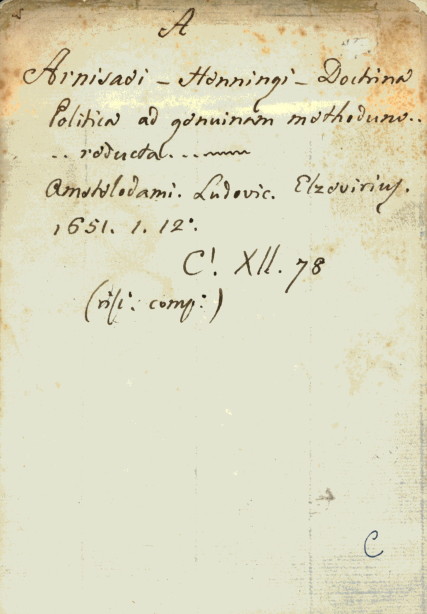 A
Arnisaei - Henningi - Doctrina
Politica ad genuinam methodum..
.. reducta...
Amstelodami. Ludovic. Elzevirius.
1651. 1. 12°.
C! XII. 78
(risi: comp:)
C